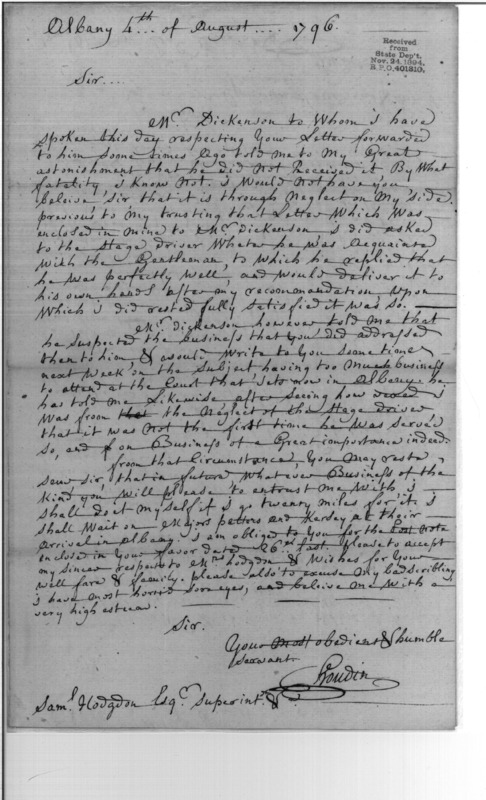 Albany 4th.. of August.... 1796.
Received
from
State Dep't.
Nov. 24, 1894,
R.P.O. 401810.
Sir....
Mr. Dickenson to Whom i have
spoken this day respecting your Letter forwarded
to him some times ago told me to My Great
astonishment that he did not Received it By What
fatality i Know Not. i Would Not have you
beleive Sir that it is through Neglect on My side.
previous to My trusting that Letter Which Was
enclosed in mine to Mr. Dickenson, i did asked
to the Stage driver Wheter he was acquainted
With the Gentleman, to which he replied that
he was perfectly well, and would deliver it to
his own hands after my recommandation upon
Which i did rested fully satisfied it was so. —
Mr. dickenson however told me that
he suspected the business that you did addressed
then to him & would Write to you some time
next Week on the subject having too Much business
to attend at the Court that sets now in Albany. he
has told me Likewise after seeing how vexed i
Was from that the Neglect of the stage driver
that it was Not the first time he was served
so, and on Business of a Great importance indeed.
from that Circumstance, You May rest a
seur Sir, that in future Whatever Business of the
Kind you Will please to entrust me With i
shall do it My self if i go twenty miles for it. i
shall Wait on Majors peters and Kersey at their
arrival in albany. i am oblige to You for the post note
enclosed in Your favor dated 26th last. please to accept
my sincer respects to Mrs. hodgdon & Wishes for Your
well fare & family. please also to excuse My bad scribling
i have most horrid sore eyes, and beleive me With a
very high esteem.
Sir.
Your Most obedient & humble
servant.
Roudin
Saml. Hodgdon Esqr. Superint. &